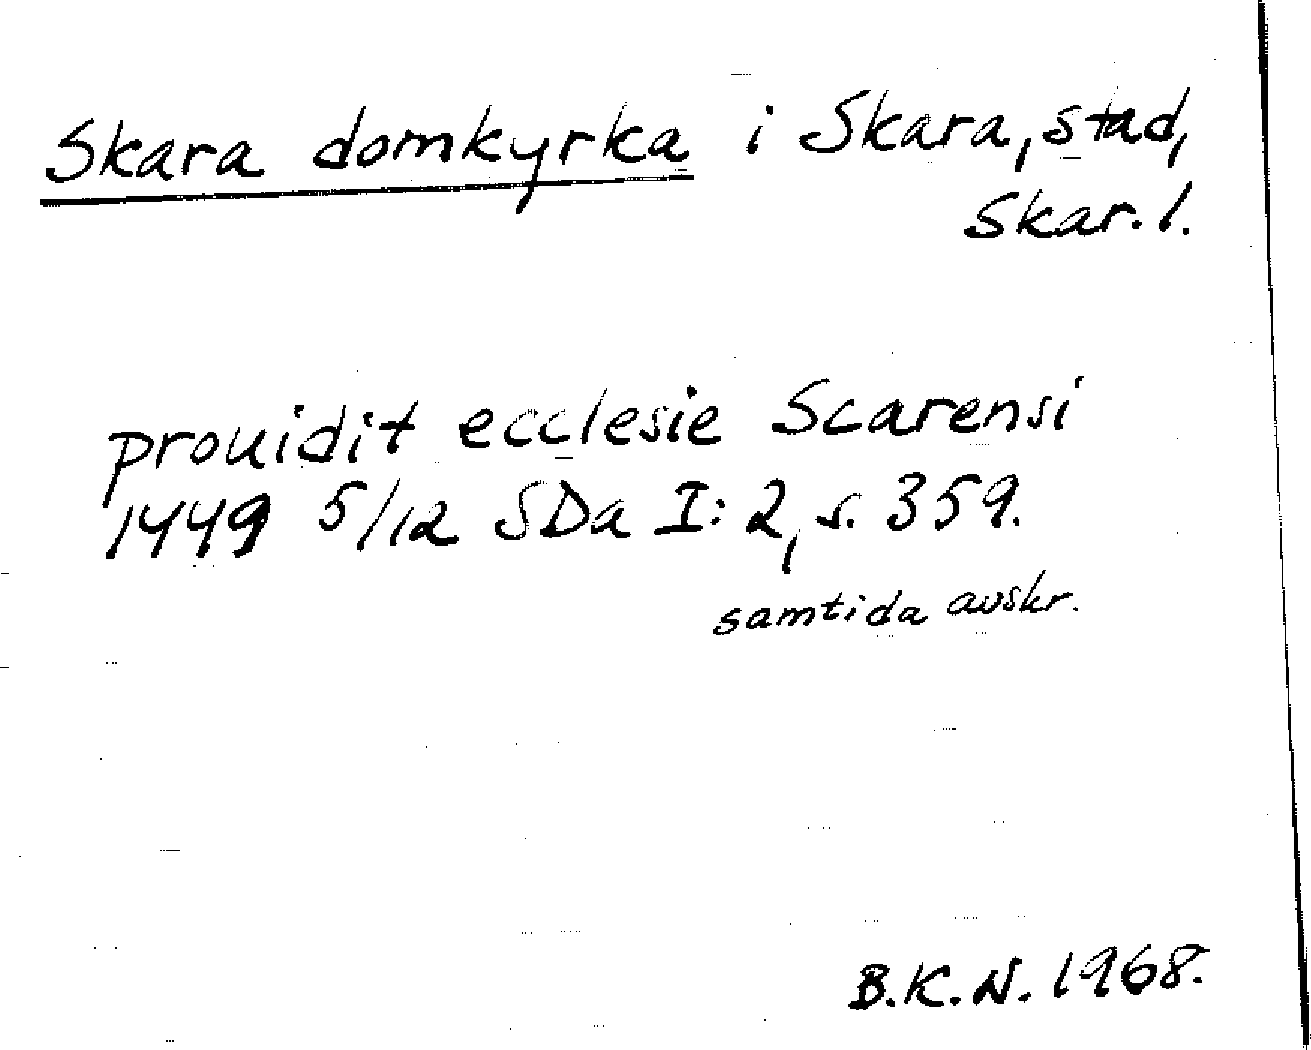 Skara domkyrka i Skara, stad,
Skar. l.
prouidit ecclesie Scarensi
1449 5/12 SDa I: 2, s. 359.
samtida avskr.
B.K.N. 1968.